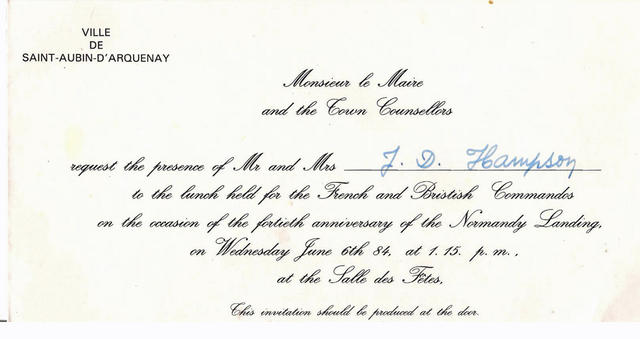 VILLE
DE
SAINT-AUBIN-D'ARQUENAY
Monsieur le Maire
and the Town Counsellors
request the presence of Mr and Mrs J. D. Hampson
to the lunch held for the French and Bristish Commandos
on the occasion of the fortieth anniversary of the Normandy Landing,
on Wednesday June 6th 84, at 1.15. p.m.,
at the Salle des Fêtes.
This invitation should be produced at the door.